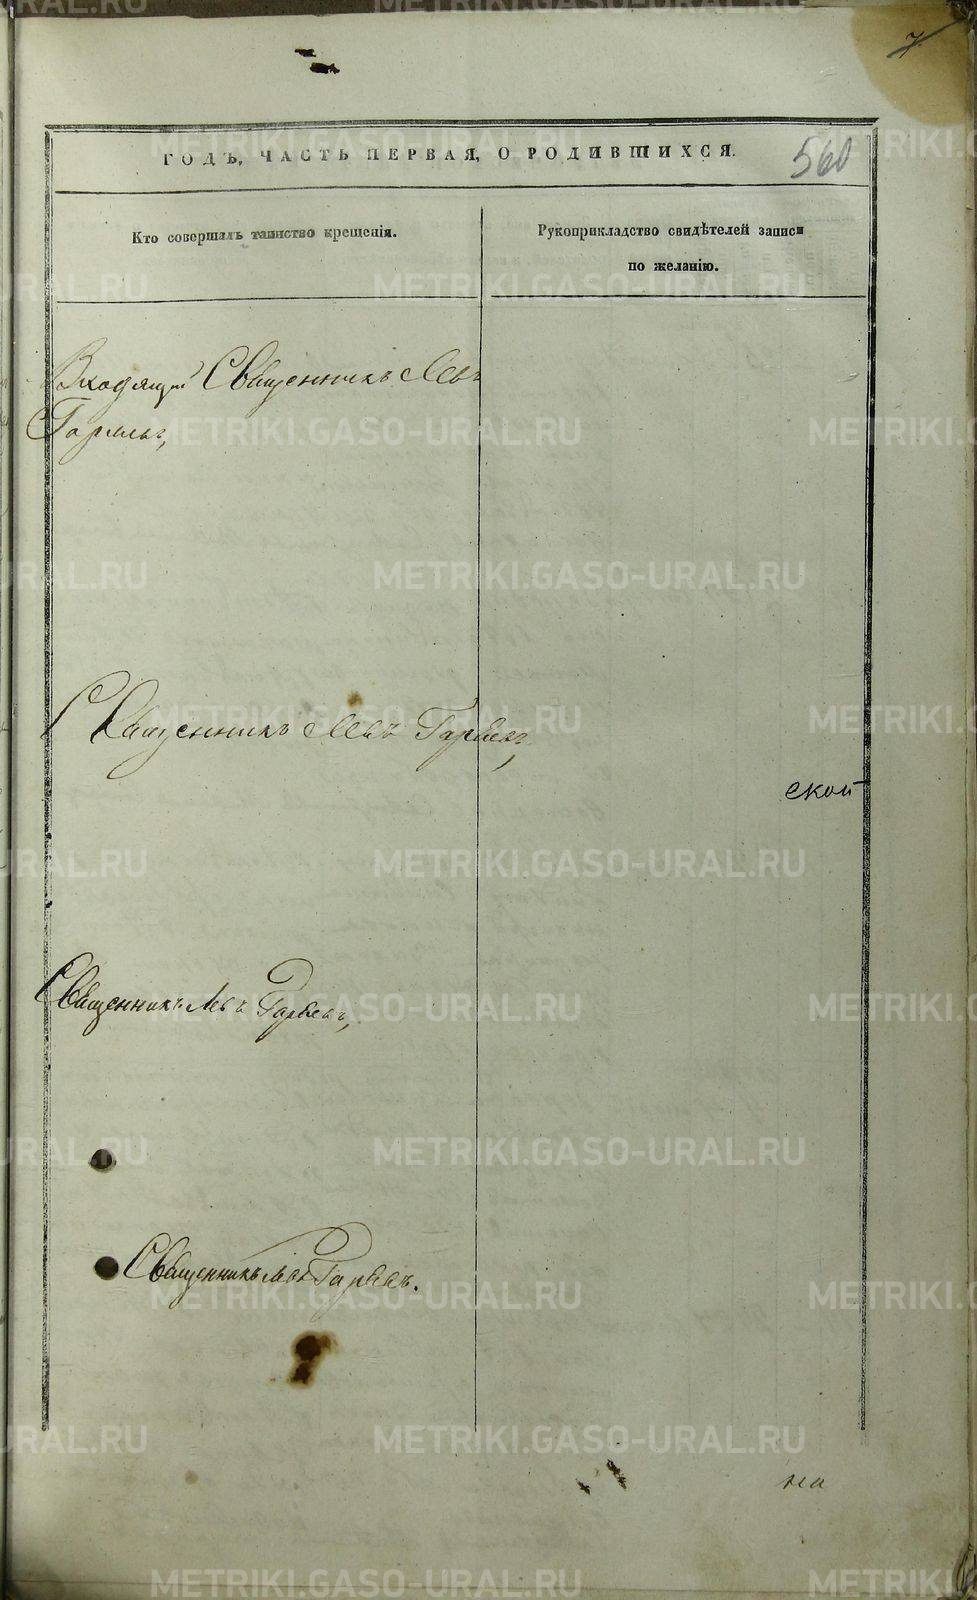 7
560
ГОДЪ, ЧАСТЬ ПЕРВАЯ, О РОДИВШИХСЯ.
Кто совершалъ таинство крещенія.
Рукоприкладство свидѣтелей записи
по желанію.
Священникъ Левъ
Священникъ Левъ
ской
Священникъ Левъ
Священникъ Левъ
на
METRIKI.GASO-URAL.RU